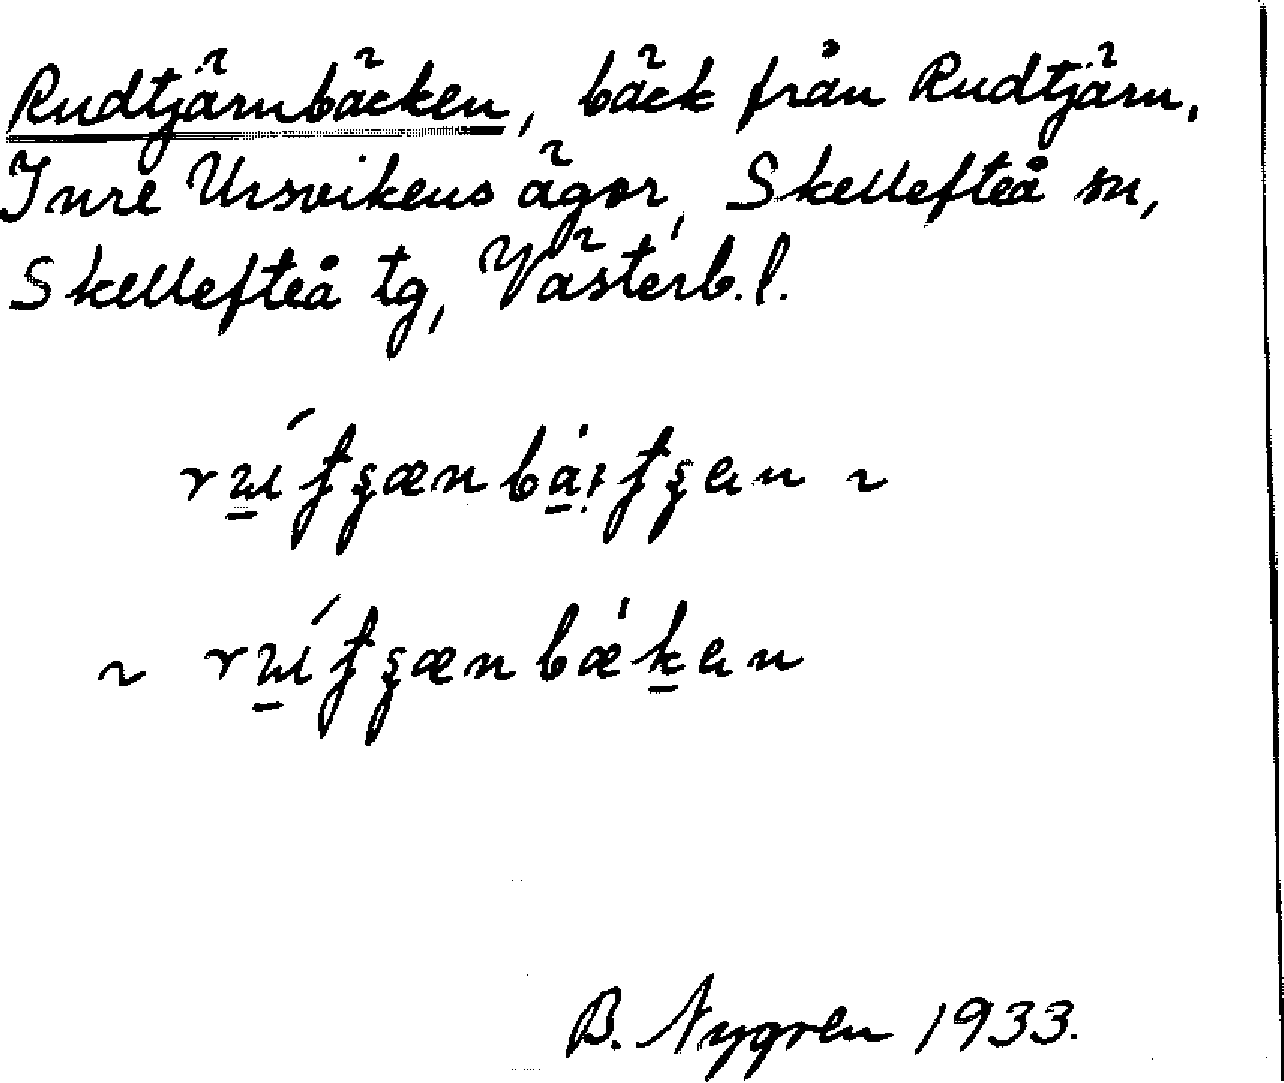 Rudtjärnbäcken, bäck från Rudtjärn,
Inre Ursvikens ägor, Skellefteå sn,
Skellefteå tg, Västerb. l.
B. Nygren 1933.